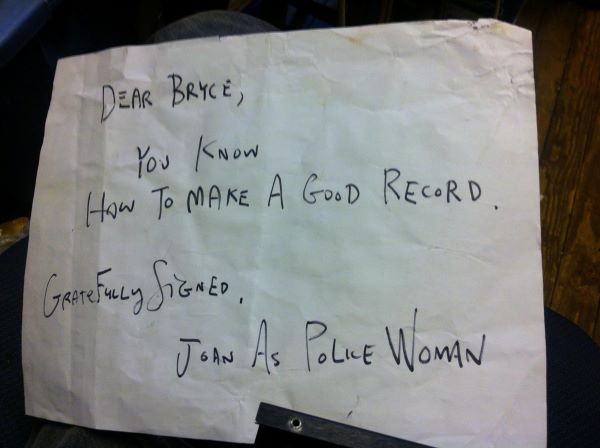 DEAR BRYCE,
YOU KNOW
HOW TO MAKE A GOOD RECORD.
GRATEFULLY SIGNED,
JOAN AS POLICE WOMAN